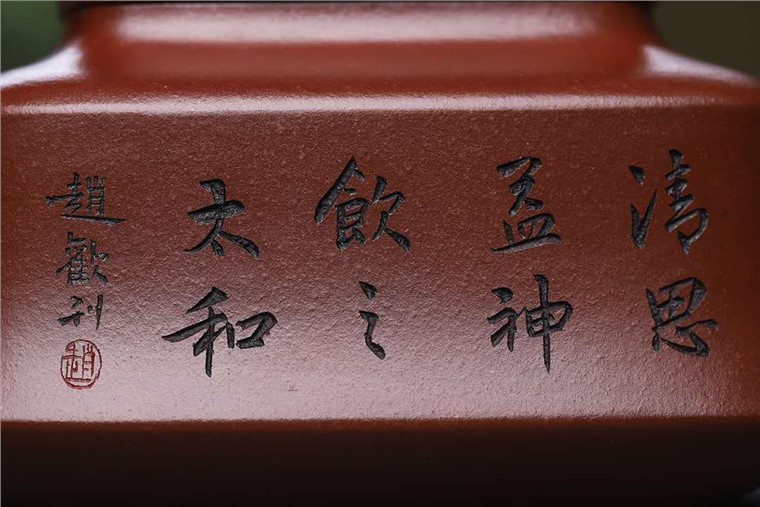 清思
盈神
飲之
太和
趙歡刊
趙